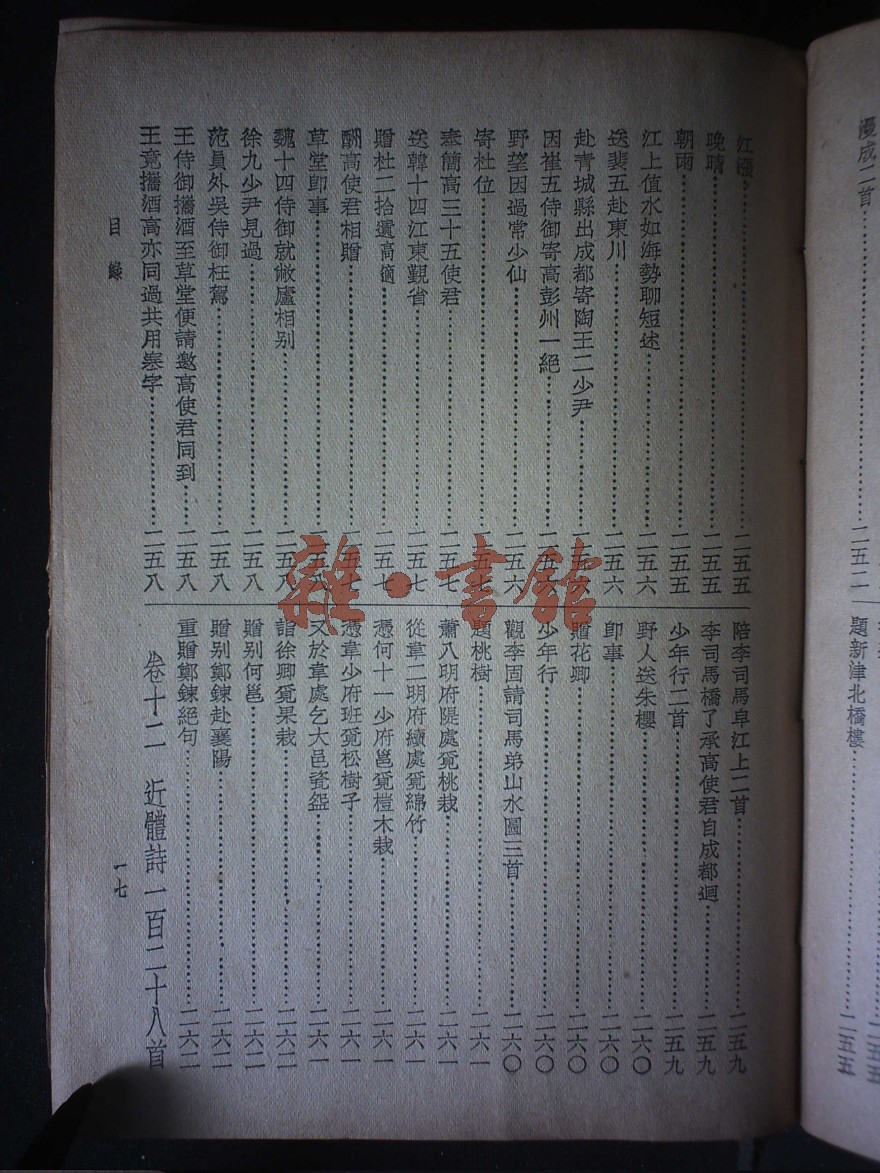 漫成二首
二五二
題新津北橋樓
二五五
江漲 二五五
晚晴 二五五
朝雨 二五五
江上值水如海勢聊短述 二五六
送裴五赴東川 二五六
赴青城縣出成都寄陶王二少尹
因崔五侍御寄高彭州一絕
野望因過常少仙 二五六
寄杜位
奉簡高三十五使君 二五七
送韓十四江東覲省 二五七
贈杜二拾遺高適 二五七
酬高使君相贈
草堂卽事
魏十四侍御就敝廬相別 二五八
徐九少尹見過 二五八
范員外吳侍御枉駕 二五八
王侍御攜酒至草堂便請邀高使君同到 二五八
王竟攜酒高亦同過共用寒字 二五八
陪李司馬皁江上二首 二五九
李司馬橋了承高使君自成都迴 二五九
少年行二首 二五九
野人送朱櫻 二六〇
卽事 二六〇
贈花卿 二六〇
少年行 二六〇
觀李固請司馬弟山水圖三首 二六〇
題桃樹 二六一
蕭八明府隄處覓桃栽 二六一
從韋二明府續處覓綿竹 二六一
憑何十一少府邕覓榿木栽 二六一
憑韋少府班覓松樹子 二六一
又於韋處乞大邑瓷盌 二六一
詣徐卿覓果栽 二六二
贈別何邕 二六二
贈別鄭鍊赴襄陽 二六二
重贈鄭鍊絕句 二六二
卷十二 近體詩一百二十八首
目錄
一七
雜·書館